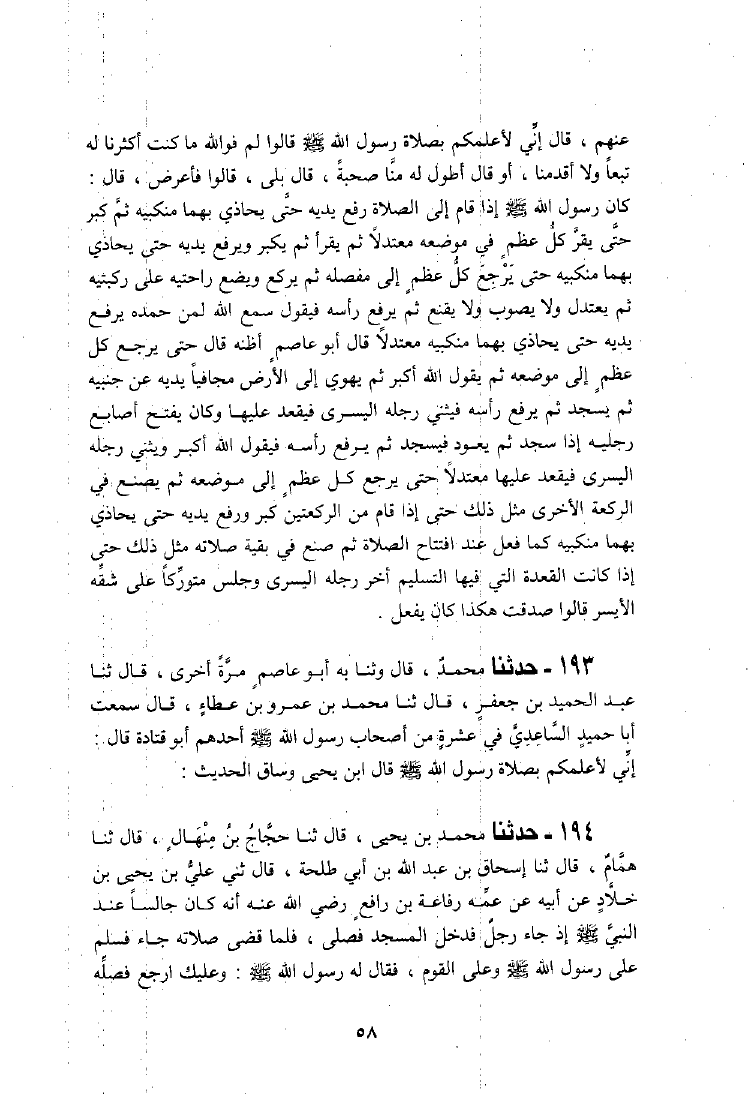 عنهم ، قال إنِّي لأعلمكم بصلاة رسول الله ﷺ قالوا لم فوالله ما كنت أكثرنا له
تبعاً ولا أقدمنا ، أو قال أطول له منَّا صحبةً ، قال بلى ، قالوا فأعرض ، قال :
كان رسول الله ﷺ إذا قام إلى الصلاة رفع يديه حتَّى يحاذي بهما منكبيه ثمَّ كبر
حتَّى يقرَّ كلُّ عظمٍ في موضعه معتدلاً ثم يقرأ ثم يكبر ويرفع يديه حتى يحاذي
بهما منكبيه حتى يَرْجِعَ كلُّ عظمٍ إلى مفصله ثم يركع ويضع راحتيه على ركبتيه
ثم يعتدل ولا يصوب ولا يقنع ثم يرفع رأسه فيقول سمع الله لمن حمده يرفع
يديه حتى يحاذي بهما منكبيه معتدلاً قال أبو عاصمٍ أظنه قال حتى يرجع كل
عظمٍ إلى موضعه ثم يقول الله أكبر ثم يهوي إلى الأرض مجافياً يديه عن جنبيه
ثم يسجد ثم يرفع رأسه فيثني رجله اليسرى فيقعد عليها وكان يفتح أصابع
رجليه إذا سجد ثم يعود فيسجد ثم يرفع رأسه فيقول الله أكبر ويثني رجله
اليسرى فيقعد عليها معتدلاً حتى يرجع كل عظمٍ إلى موضعه ثم يصنع في
الركعة الأخرى مثل ذلك حتى إذا قام من الركعتين كبر ورفع يديه حتى يحاذي
بهما منكبيه كما فعل عند افتتاح الصلاة ثم صنع في بقية صلاته مثل ذلك حتى
إذا كانت القعدة التي فيها التسليم أخر رجله اليسرى وجلس متورِّكاً على شقِّه
الأيسر قالوا صدقت هكذا كان يفعل .
١٩٣ - حدثنا محمدٌ ، قال وثنا به أبو عاصمٍ مرَّةً أخرى ، قال ثنا
عبد الحميد بن جعفرٍ ، قال ثنا محمد بن عمرو بن عطاءٍ ، قال سمعت
أبا حميدٍ السَّاعِديَّ في عشرةٍ من أصحاب رسول الله ﷺ أحدهم أبو قتادة قال :
إنِّي لأعلمكم بصلاة رسول الله ﷺ قال ابن يحيى وساق الحديث :
١٩٤ - حدثنا محمد بن يحيى ، قال ثنا حجَّاجُ بنُ مِنْهَالٍ ، قال ثنا
همَّامٌ ، قال ثنا إسحاق بن عبد الله بن أبي طلحة ، قال ثني عليُّ بن يحيى بن
خلَّادٍ عن أبيه عن عمِّه رفاعة بن رافعٍ رضي الله عنه أنه كان جالساً عند
النبيِّ ﷺ إذ جاء رجلٌ فدخل المسجد فصلى ، فلما قضى صلاته جاء فسلم
على رسول الله ﷺ وعلى القوم ، فقال له رسول الله ﷺ : وعليك ارجع فصلِّه
٥٨